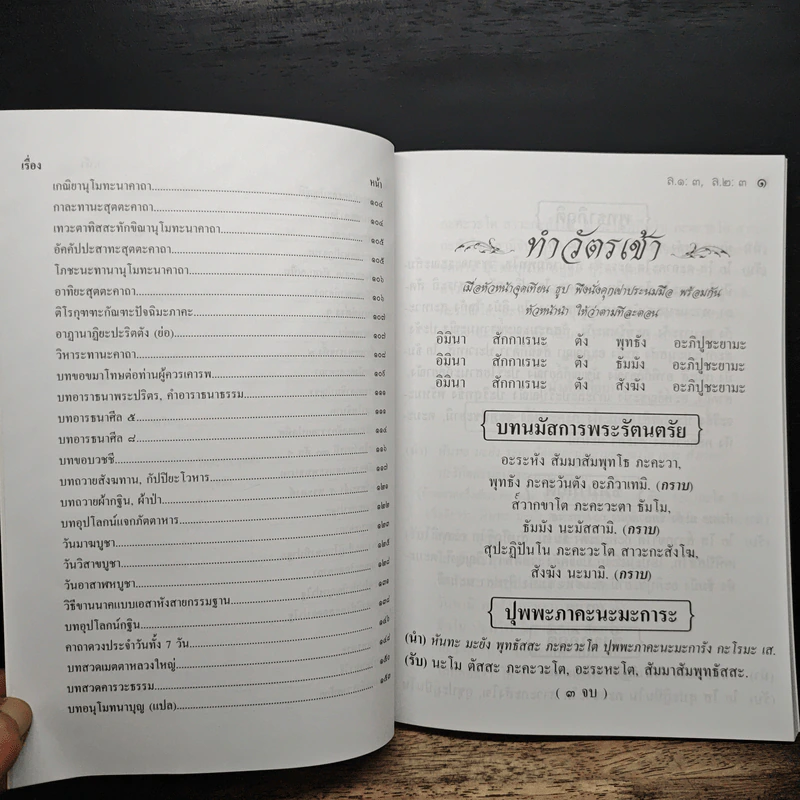 เรื่อง หน้า
เกณิยานุโมทะนาคาถา ๑๐๔
กาละทานะสุตตะคาถา ๑๐๔
เทวะตาทิสสะทักขิณานุโมทะนาคาถา ๑๐๕
อัคคัปปะสาทะสุตตะคาถา ๑๐๕
โภชะนะทานานุโมทะนาคาถา ๑๐๖
อาทิยะสุตตะคาถา ๑๐๖
ติโรกุฑฑะกัณฑะปัจฉิมะภาคะ ๑๐๗
อาฏานาฏิยะปะริตตัง (ย่อ) ๑๐๗
วิหาระทานะคาถา ๑๐๘
บทขอขมาโทษต่อท่านผู้ควรเคารพ ๑๐๙
บทอาราธนาพระปริตร, คำอาราธนาธรรม ๑๑๑
บทอารธนาศีล ๕ ๑๑๑
บทอารธนาศีล ๘ ๑๑๔
บทขอบวชชี ๑๑๖
บทถวายสังฆทาน, กัปปิยะโวหาร ๑๑๗
บทถวายผ้ากฐิน, ผ้าป่า ๑๒๑
บทอุปโลกน์แจกภัตตาหาร ๑๒๒
วันมาฆบูชา ๑๒๓
วันวิสาขบูชา ๑๒๕
วันอาสาฬหบูชา ๑๒๘
วิธีขานนาคแบบเอสาหังสายกรรมฐาน ๑๓๑
บทอุปโลกน์กฐิน ๑๓๘
คาถาดวงประจำวันทั้ง 7 วัน ๑๔๖
บทสวดเมตตาหลวงใหญ่
บทสวดคารวะธรรม
บทอนุโมทนาบุญ (แปล)
ส.๑: ๓, ส.๒: ๓ ๑
ทำวัตรเช้า
เมื่อหัวหน้าจุดเทียน ธูป พึงนั่งคุกเข่าประนมมือ พร้อมกัน
หัวหน้านำ ให้ว่าตามทีละตอน
อิมินา สักกาเรนะ ตัง พุทธัง อะภิปูชะยามะ
อิมินา สักกาเรนะ ตัง ธัมมัง อะภิปูชะยามะ
อิมินา สักกาเรนะ ตัง สังฆัง อะภิปูชะยามะ
บทนมัสการพระรัตนตรัย
อะระหัง สัมมาสัมพุทโธ ภะคะวา,
พุทธัง ภะคะวันตัง อะภิวาเทมิ. (กราบ)
ส๎วากขาโต ภะคะวะตา ธัมโม,
ธัมมัง นะมัสสามิ. (กราบ)
สุปะฏิปันโน ภะคะวะโต สาวะกะสังโฆ,
สังฆัง นะมามิ. (กราบ)
ปุพพะภาคะนะมะการะ
(นำ) หันทะ มะยัง พุทธัสสะ ภะคะวะโต ปุพพะภาคะนะมะการัง กะโรมะ เส.
(รับ) นะโม ตัสสะ ภะคะวะโต, อะระหะโต, สัมมาสัมพุทธัสสะ.
( ๓ จบ )